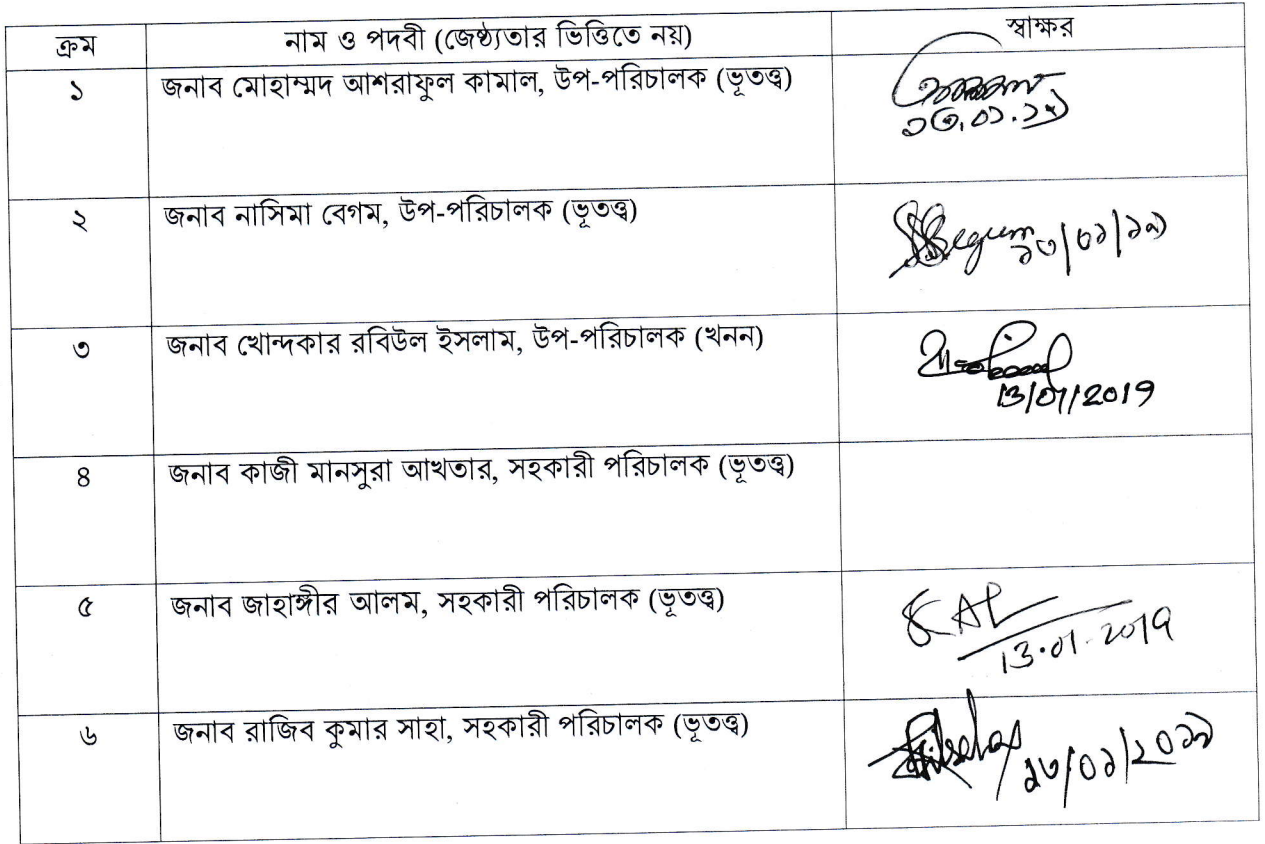 ক্রম নাম ও পদবী (জেষ্ঠ্যতার ভিত্তিতে নয়) স্বাক্ষর
১ জনাব মোহাম্মদ আশরাফুল কামাল, উপ-পরিচালক (ভূতত্ত্ব)
১৩.০১.১৯
২ জনাব নাসিমা বেগম, উপ-পরিচালক (ভূতত্ত্ব)
Begum ১৩/০১/১৯
৩ জনাব খোন্দকার রবিউল ইসলাম, উপ-পরিচালক (খনন)
13/01/2019
৪ জনাব কাজী মানসুরা আখতার, সহকারী পরিচালক (ভূতত্ত্ব)
৫ জনাব জাহাঙ্গীর আলম, সহকারী পরিচালক (ভূতত্ত্ব)
13.01.2019
৬ জনাব রাজিব কুমার সাহা, সহকারী পরিচালক (ভূতত্ত্ব)
১৩/০১/২০১৯